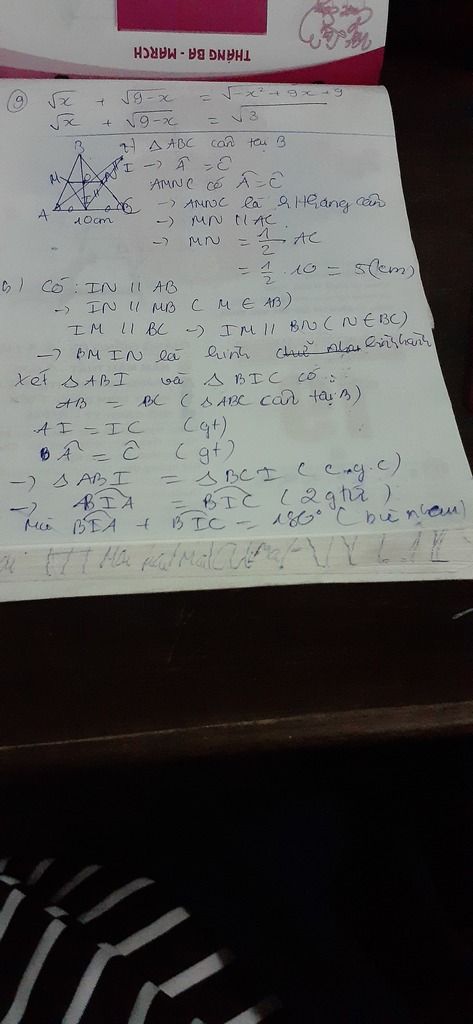 THÁNG BA - MARCH
⑨ √x + √9-x = √-x²+9x+9
√x + √9-x = √3
a) △ ABC cân tại B
→ Â = Ĉ
AMNC có Â = Ĉ
→ AMNC là hthang cân
→ MN // AC
→ MN = 1/2 AC
= 1/2 . 10 = 5(cm)
B I M N A C 10cm
b) Có: IN // AB
→ IN // MB ( M ∈ AB)
IM // BC → IM // BN ( N ∈ BC)
→ BMIN là hình bình hành
Xét △ ABI và △ BIC có:
AB = BC ( △ ABC cân tại B)
AI = IC (gt)
Â = Ĉ (gt)
→ △ ABI = △ BCI ( c.g.c)
→ BIA = BIC ( 2 gtứ )
Mà BIA + BIC = 180° ( bù nhau)